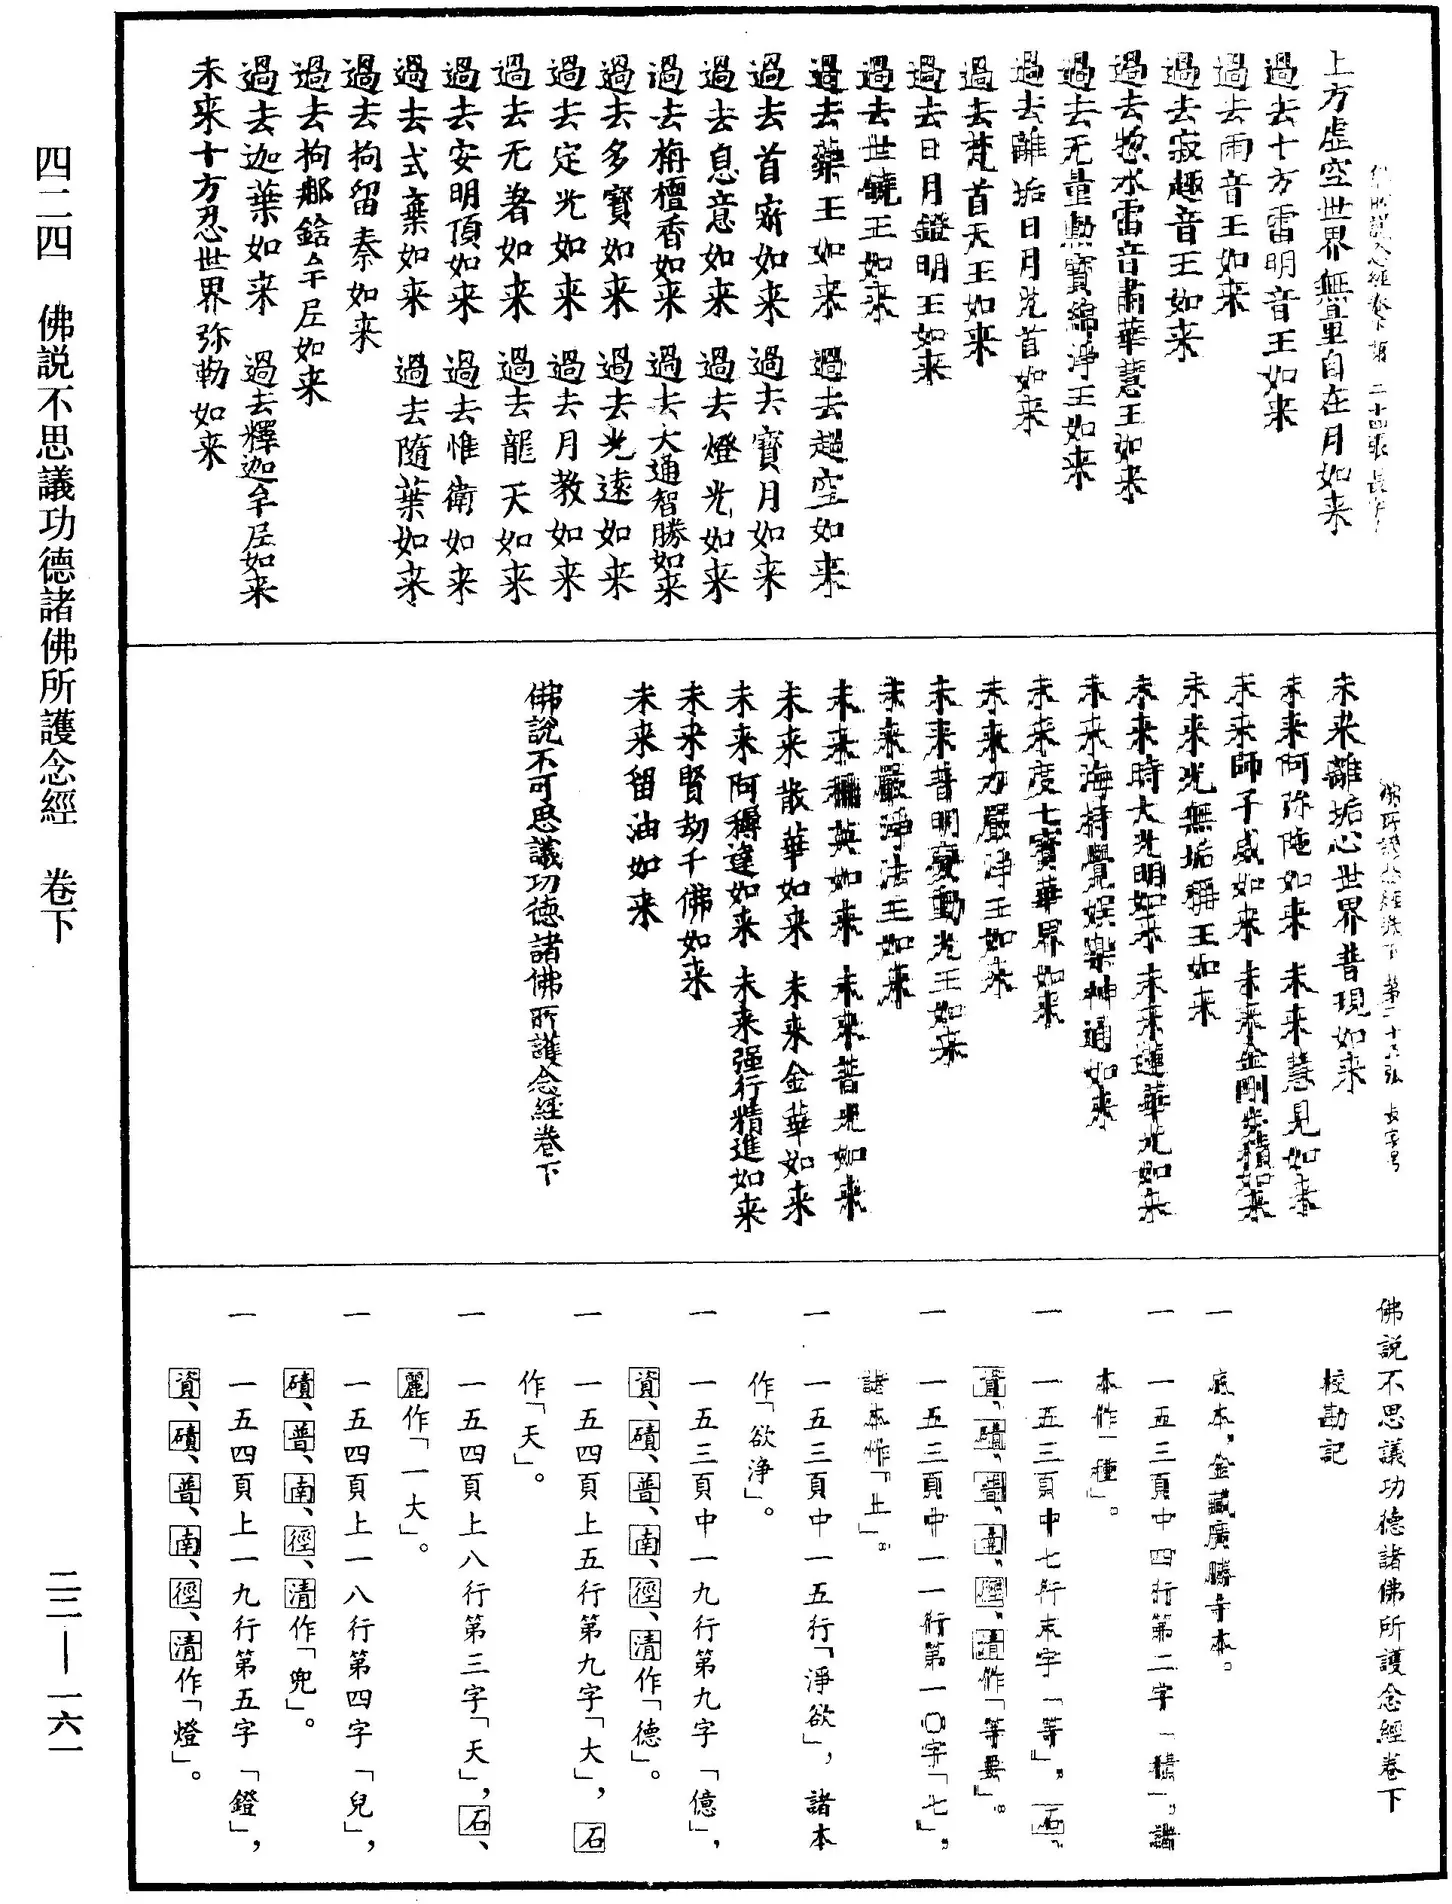 四二四　佛說不思議功德諸佛所護念經　卷下
二二—一六一
上方虛空世界無量自在月如来
過去十方雷明音王如来
過去雨音王如来
過去寂趣音王如来
過去惣水雷音肅華慧王如来
過去无量勳寶綿淨王如来
過去離垢日月光首如来
過去梵首天王如来
過去日月鐙明王如来
過去世饒王如来
過去藥王如来　過去超空如来
過去首寂如来　過去寶月如来
過去息意如来　過去燈光如来
過去栴檀香如来　過去大通智勝如来
過去多寶如来　過去光遠如来
過去定光如来　過去月教如来
過去无著如来　過去龍天如来
過去安明頂如来　過去惟衛如来
過去式棄如来　過去隨葉如来
過去拘留秦如来
過去拘鄰鋡牟尼如来
過去迦葉如来　過去釋迦牟尼如来
未来十方忍世界弥勒如来
未来離垢心世界普現如来
未来阿弥陁如来　未来慧見如来
未来師子威如来　未来金剛步積如来
未来光無垢稱王如来
未来時大光明如来　未来蓮華光如来
未来海持覺娛樂神通如来
未来度七寶華界如来
未来力嚴淨王如来
未来普明變動光王如来
未来嚴淨法王如来
未来稱英如来　未来普光如来
未来散華如来　未来金華如来
未来阿耨達如来　未来强行精進如来
未来賢劫千佛如来
未来留油如来
佛說不可思議功德諸佛所護念經卷下
佛說不思議功德諸佛所護念經卷下
校勘記
一　底本，金藏廣勝寺本。
一　一五三頁中四行第二字「積」，諸
本作「種」。
一　一五三頁中七行末字「等」，石、
資、磧、普、南、徑、清作「等曼」。
一　一五三頁中一一行第一〇字「七」，
諸本作「土」。
一　一五三頁中一五行「淨欲」，諸本
作「欲淨」。
一　一五三頁中一九行第九字「億」，
資、磧、普、南、徑、清作「德」。
一　一五四頁上五行第九字「大」，石
作「天」。
一　一五四頁上八行第三字「天」，石、
麗作「一大」。
一　一五四頁上一八行第四字「兒」，
磧、普、南、徑、清作「兜」。
一　一五四頁上一九行第五字「鐙」，
資、磧、普、南、徑、清作「燈」。